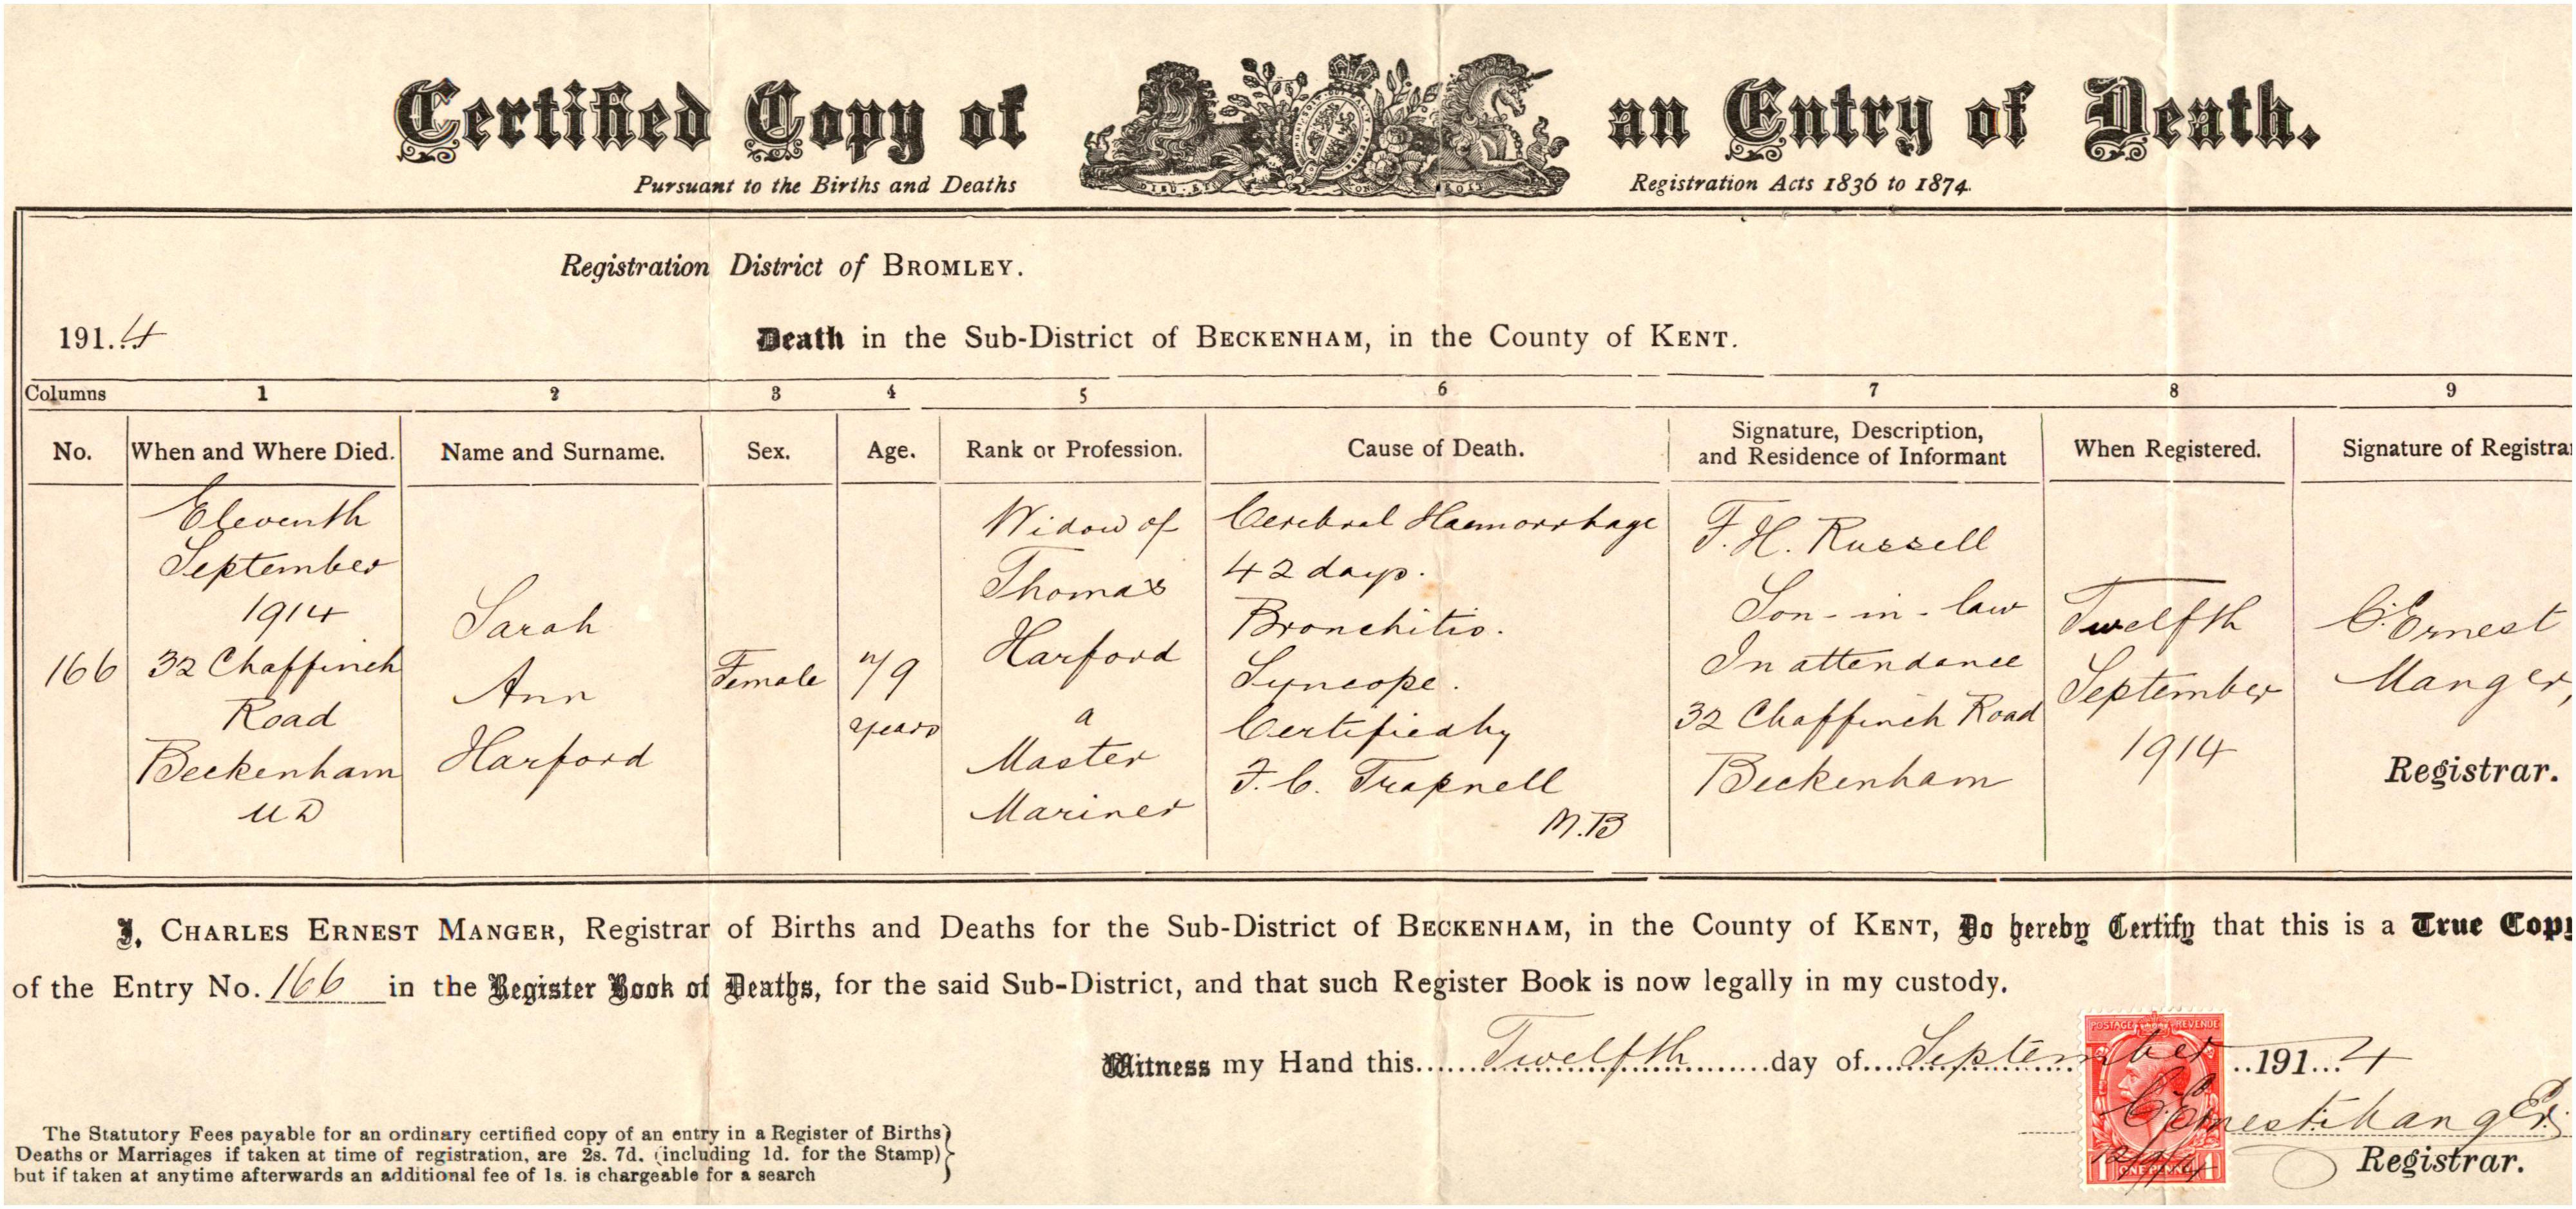 Certified Copy of an Entry of Death.
Pursuant to the Births and Deaths Registration Acts 1836 to 1874.
Registration District of BROMLEY.
191..4 Death in the Sub-District of BECKENHAM, in the County of KENT.
Columns 1 2 3 4 5 6 7 8 9
No. When and Where Died. Name and Surname. Sex. Age. Rank or Profession. Cause of Death. Signature, Description, and Residence of Informant When Registered. Signature of Registra
166
Eleventh
September
1914
32 Chaffinch
Road
Beckenham
U D
Sarah
Ann
Harford
Female
79
years
Widow of
Thomas
Harford
a
Master
Mariner
Cerebral Haemorrhage
42 days.
Bronchitis.
Syncope.
Certified by
F. C. Trapnell
M.B
F. H. Russell
Son-in-law
In attendance
32 Chaffinch Road
Beckenham
Twelfth
September
1914
C. Ernest
Manger,
Registrar.
I, CHARLES ERNEST MANGER, Registrar of Births and Deaths for the Sub-District of BECKENHAM, in the County of KENT, Do hereby Certify that this is a True Copy
of the Entry No. 166 in the Register Book of Deaths, for the said Sub-District, and that such Register Book is now legally in my custody.
Witness my Hand this Twelfth day of September 191...4
POSTAGE REVENUE
C. Ernest Manger
12/9/14
1 ONE PENNY 1
Registrar.
The Statutory Fees payable for an ordinary certified copy of an entry in a Register of Births
Deaths or Marriages if taken at time of registration, are 2s. 7d. (including 1d. for the Stamp)
but if taken at anytime afterwards an additional fee of 1s. is chargeable for a search